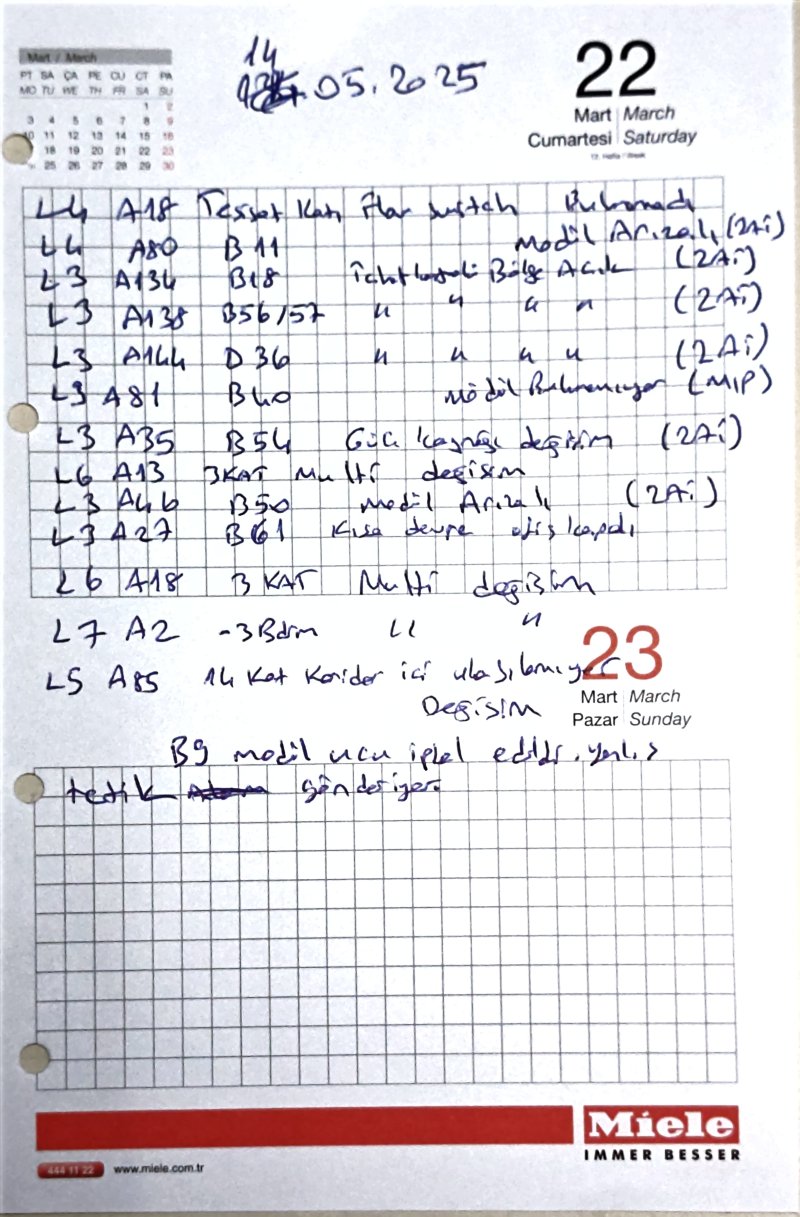 Mart / March
PT SA ÇA PE CU CT PA
MO TU WE TH FR SA SU
1 2
3 4 5 6 7 8 9
10 11 12 13 14 15 16
18 19 20 21 22 23
25 26 27 28 29 30
14
05.2025
22
Mart March
Cumartesi Saturday
L4 A18 Tesisat Katı Flow switch Bulunamadı
L4 A80 B11 Modül Arızalı (2Ai)
L3 A134 B18 Bölge Açık (2Ai)
L3 A138 B56/57 " " " " (2Ai)
L3 A144 D36 " " " " (2Ai)
L3 A81 B40 Modül Bulunamıyor (MIP)
L3 A35 B54 Güç kaynağı değişim (2Ai)
L6 A13 3KAT Multi değişim
L3 A46 B50 Modül Arızalı (2Ai)
L3 A27 B61 Kısa devre ofis kapalı
L6 A18 3 KAT Multi değişim
L7 A2 -3Bdrm " "
L5 A85 14 Kat Koridor içi ulaşılamıyor
Değişim
23
Mart March
Pazar Sunday
B9 modül ucu iptal edildi. yanlış
tetik gönderiyor.
Miele
IMMER BESSER
444 11 22 www.miele.com.tr